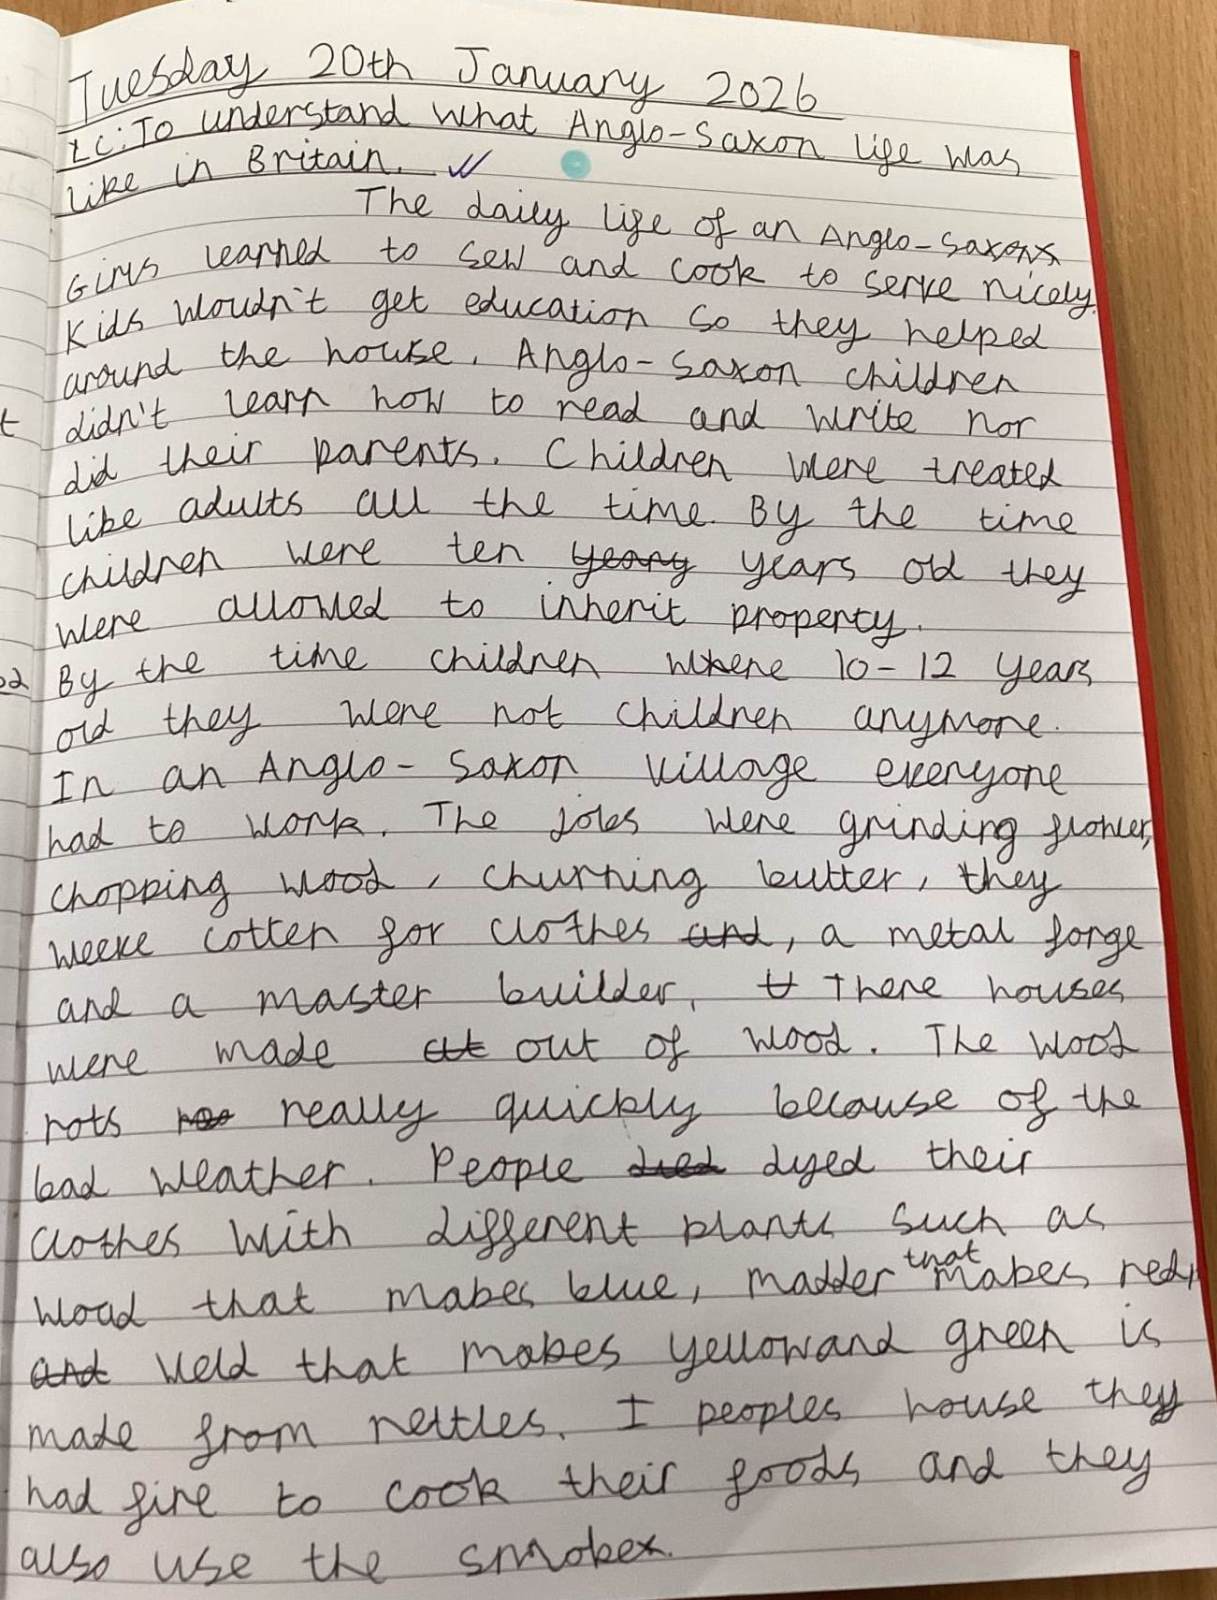 Tuesday 20th January 2026
LC: To understand what Anglo-Saxon life was
like in Britain.
The daily life of an Anglo-Saxons
Girls learned to sew and cook to serve nicely.
Kids wouldn't get education so they helped
around the house. Anglo-Saxon children
didn't learn how to read and write nor
did their parents. Children were treated
like adults all the time. By the time
children were ten yeary years old they
were allowed to inherit property.
By the time children where 10-12 years
old they were not children anymore.
In an Anglo-Saxon village everyone
had to work. The jobs were grinding
chopping wood, churning butter, they
weeve cotten for clothes and, a metal forge
and a master builder. t There houses
were made out of wood. The wood
rots really quickly because of the
bad weather. People died dyed their
clothes with different plants such as
woad that makes blue, madder that makes red,
and weld that makes yellow and green is
made from nettles. I peoples house they
had fire to cook their foods and they
also use the smoke.
t